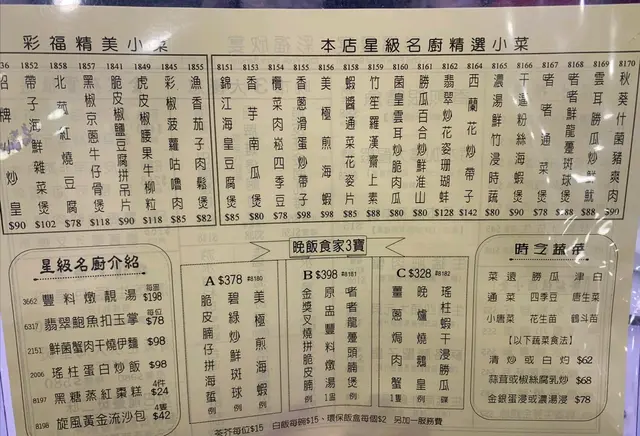 彩福精美小菜
36 招牌小炒皇 $90
1852 帶子海鮮雜菜煲 $102
1858 北菰紅燒豆腐 $78
1840 黑椒京蔥牛仔骨 $118
1841 脆皮椒鹽豆腐拼吊片 $90
1849 虎皮椒腰果牛柳粒 $118
1845 彩椒菠蘿咕嚕肉 $85
1855 漁香茄子肉鬆煲 $82
本店星級名廚精選小菜
8151 錦江海皇豆腐煲 $85
8153 香芋南瓜煲 $80
8154 欖菜肉崧四季豆 $78
8155 香蔥滑蛋炒帶子 $98
8156 美極煎海蝦 $98
8158 蝦醬通菜花姿片 $88
8159 竹笙羅漢齋上素 $88
8160 菌皇雲耳炒脆肉瓜 $80
8161 勝瓜百合炒鮮淮山 $80
8162 翡翠炒花姿珊瑚蚌 $128
8164 西蘭花炒帶子 $142
8165 濃湯鮮竹浸時蔬 $80
8166 干逼粉絲海蝦煲 $90
8167 者者通菜煲 $78
8168 者者鮮龍躉斑球煲 $88
8169 雲耳勝瓜炒鮮魷 $88
8170 秋葵什菌豬爽肉 $90
星級名廚介紹
3662 豐料燉靚湯 每窩 $198
6317 翡翠鮑魚扣玉掌 每位 $78
2151 鮮菌蟹肉干燒伊麵 $98
2006 瑤柱蛋白炒飯 $98
8197 黑糖蒸紅棗糕 4件 $24
8198 旋風黃金流沙包 4隻 $42
晚飯食家3寶
A $378 #8180
脆皮腩仔拼海蜇 例
碧綠炒鮮斑球 例
美極煎海蝦 例
B $398 #8181
金獎叉燒拼脆皮腩 例
原盅豐料燉湯 1窩
啫啫龍躉頭腩煲 例
C $328 #8182
薑蔥焗肉蟹 1隻
晚爐燒鵝皇 例
瑤柱蝦干浸勝瓜 碟
時令蔬菜
菜遠 勝瓜 津白
通菜 四季豆 唐生菜
小唐菜 花生苗 鶴斗苗
【以下蔬菜食法】
清炒或白灼 $62
蒜茸或椒絲腐乳炒 $68
金銀蛋浸或濃湯浸 $78
茶芥每位$15 白飯每碗$15、環保飯盒每個$2 另加一服務費